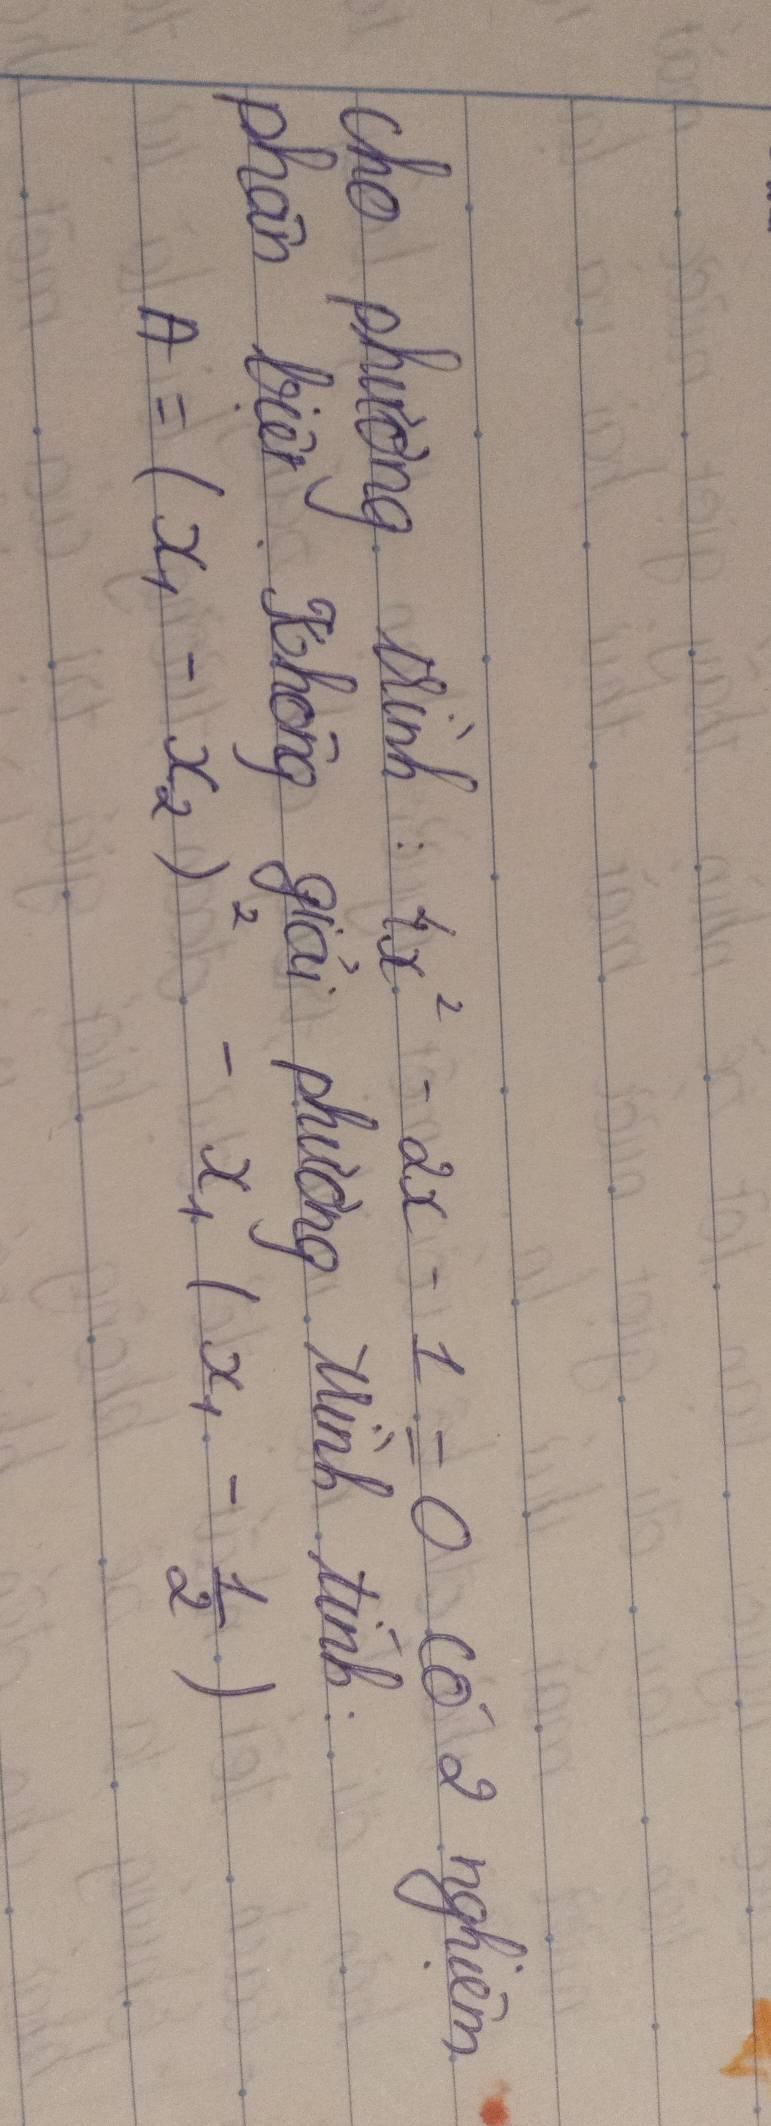 Cho phương trình : 4x² - 2x - 1 = 0 có 2 nghiệm
phân biệt. Không giải phương trình tính.
A = ( x₁ - x₂ )² - x₁ ( x₁ - 1/2 )